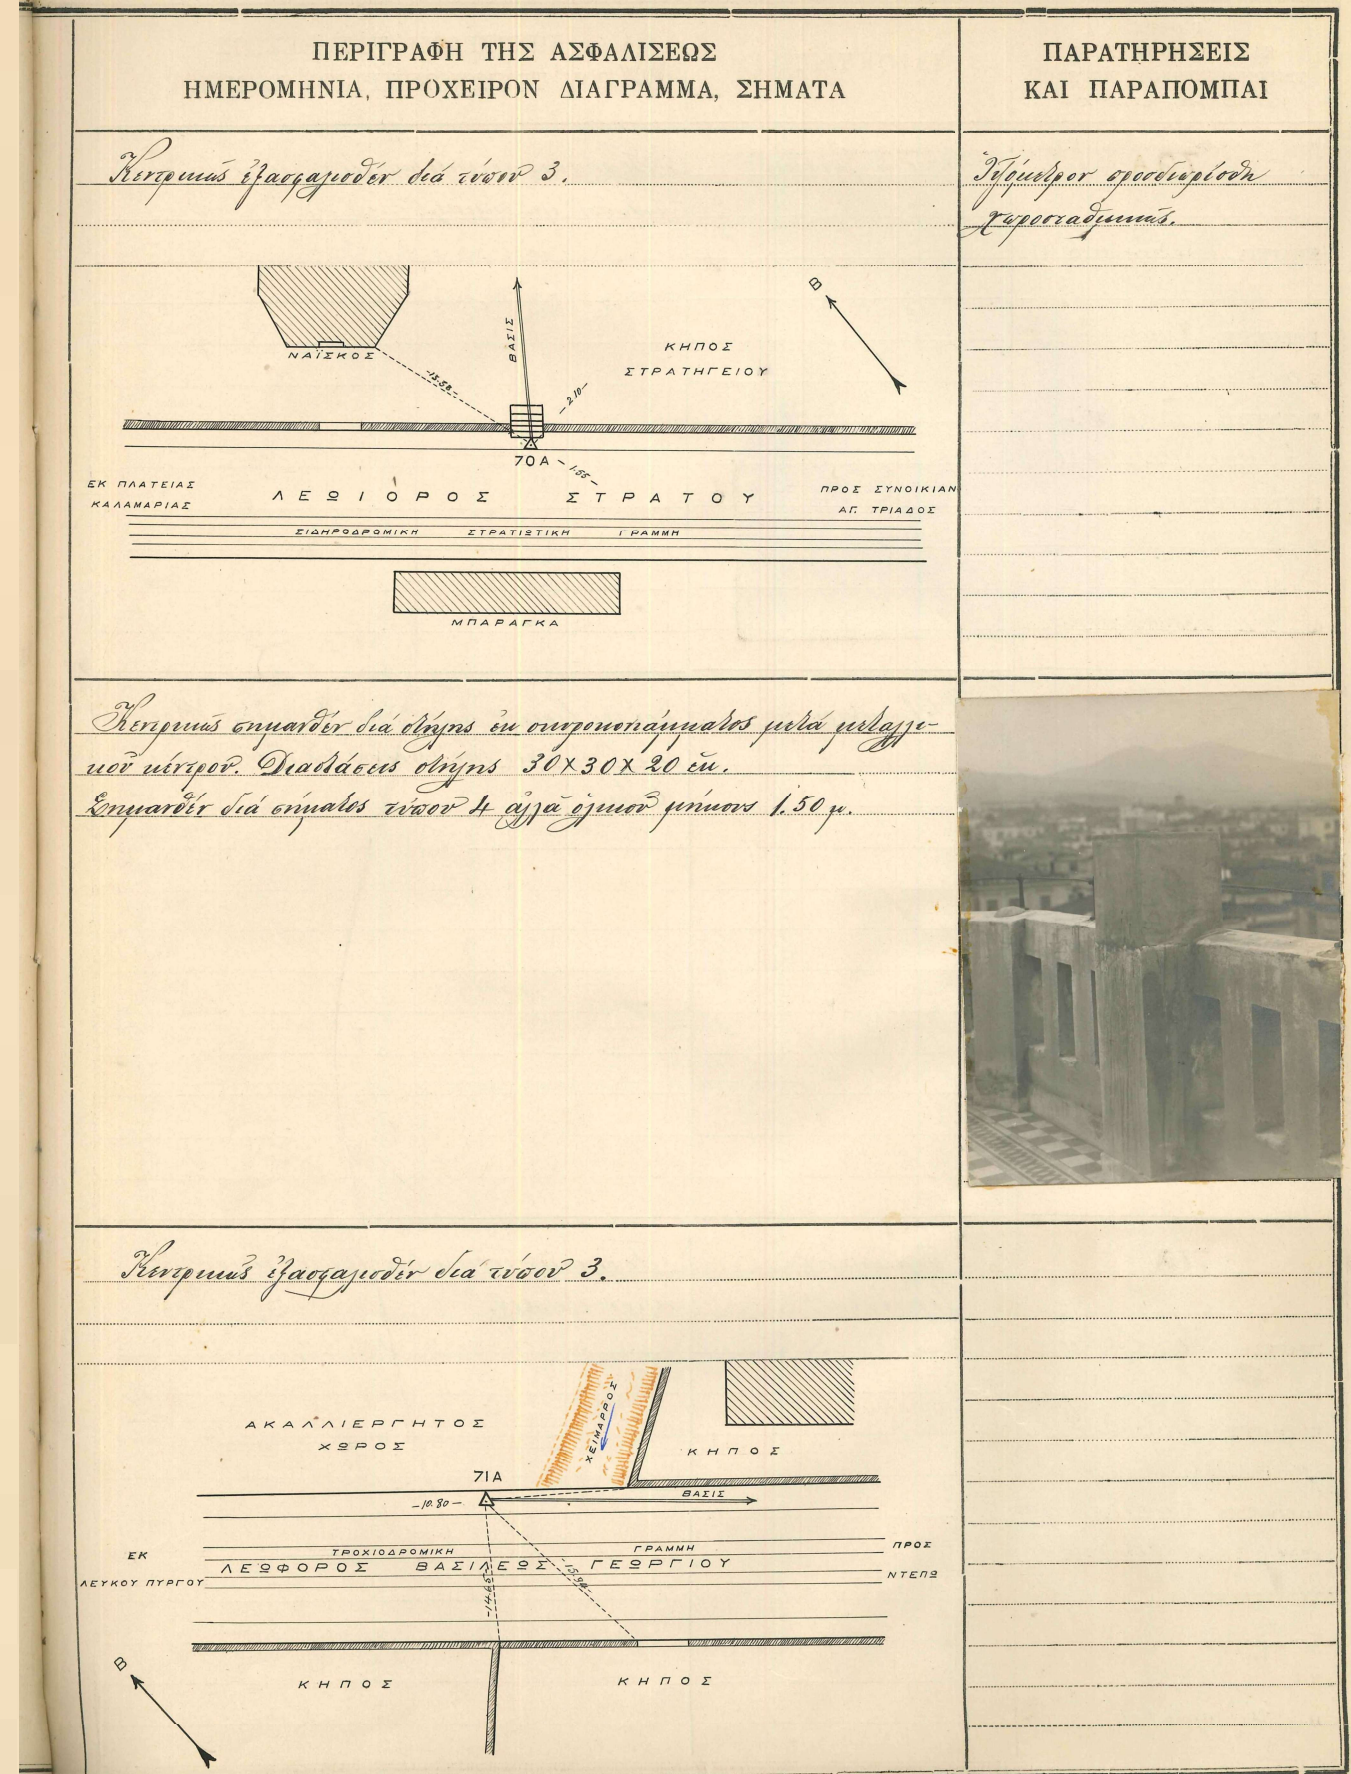 ΠΕΡΙΓΡΑΦΗ ΤΗΣ ΑΣΦΑΛΙΣΕΩΣ
ΗΜΕΡΟΜΗΝΙΑ, ΠΡΟΧΕΙΡΟΝ ΔΙΑΓΡΑΜΜΑ, ΣΗΜΑΤΑ
ΠΑΡΑΤΗΡΗΣΕΙΣ
ΚΑΙ ΠΑΡΑΠΟΜΠΑΙ
Κεντρικῶς ἐξασφαλισθέν διά τύπου 3.
Ὑψόμετρον προσδιωρίσθη
χωροσταθμικῶς.
Β
ΒΑΣΙΣ
ΚΗΠΟΣ
ΣΤΡΑΤΗΓΕΙΟΥ
ΝΑΪΣΚΟΣ
-15.58-
-2.10-
70Α
-1.55-
ΕΚ ΠΛΑΤΕΙΑΣ
ΚΑΛΑΜΑΡΙΑΣ
ΛΕΩΙΟΡΟΣ ΣΤΡΑΤΟΥ
ΠΡΟΣ ΣΥΝΟΙΚΙΑΝ
ΑΓ. ΤΡΙΑΔΟΣ
ΣΙΔΗΡΟΔΡΟΜΙΚΗ ΣΤΡΑΤΙΩΤΙΚΗ ΓΡΑΜΜΗ
ΜΠΑΡΑΓΚΑ
Κεντρικῶς σημανθέν διά στήλης ἐκ σκυροκονιάμματος μετά μεταλλι-
κοῦ κέντρου. Διαστάσεις στήλης 30 Χ 30 Χ 20 ἐκ.
Σημανθέν διά σήματος τύπου 4 ἀλλά ὁλικοῦ μήκους 1.50 μ.
Κεντρικῶς ἐξασφαλισθέν διά τύπου 3.
ΑΚΑΛΛΙΕΡΓΗΤΟΣ
ΧΩΡΟΣ
ΧΕΙΜΑΡΡΟΣ
ΚΗΠΟΣ
71Α
-10.80-
ΒΑΣΙΣ
ΕΚ
ΛΕΥΚΟΥ ΠΥΡΓΟΥ
ΤΡΟΧΙΟΔΡΟΜΙΚΗ ΓΡΑΜΜΗ
ΛΕΩΦΟΡΟΣ ΒΑΣΙΛΕΩΣ ΓΕΩΡΓΙΟΥ
ΠΡΟΣ
ΝΤΕΠΩ
-14.65-
Β
ΚΗΠΟΣ
ΚΗΠΟΣ